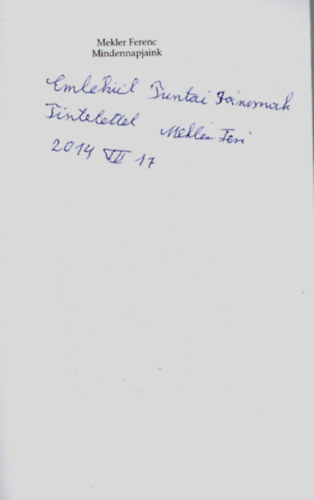 Mekler Ferenc
Mindennapjaink
Emlékül Puntai Jánosnak
Tisztelettel Mekler Feri
2014 VII 17